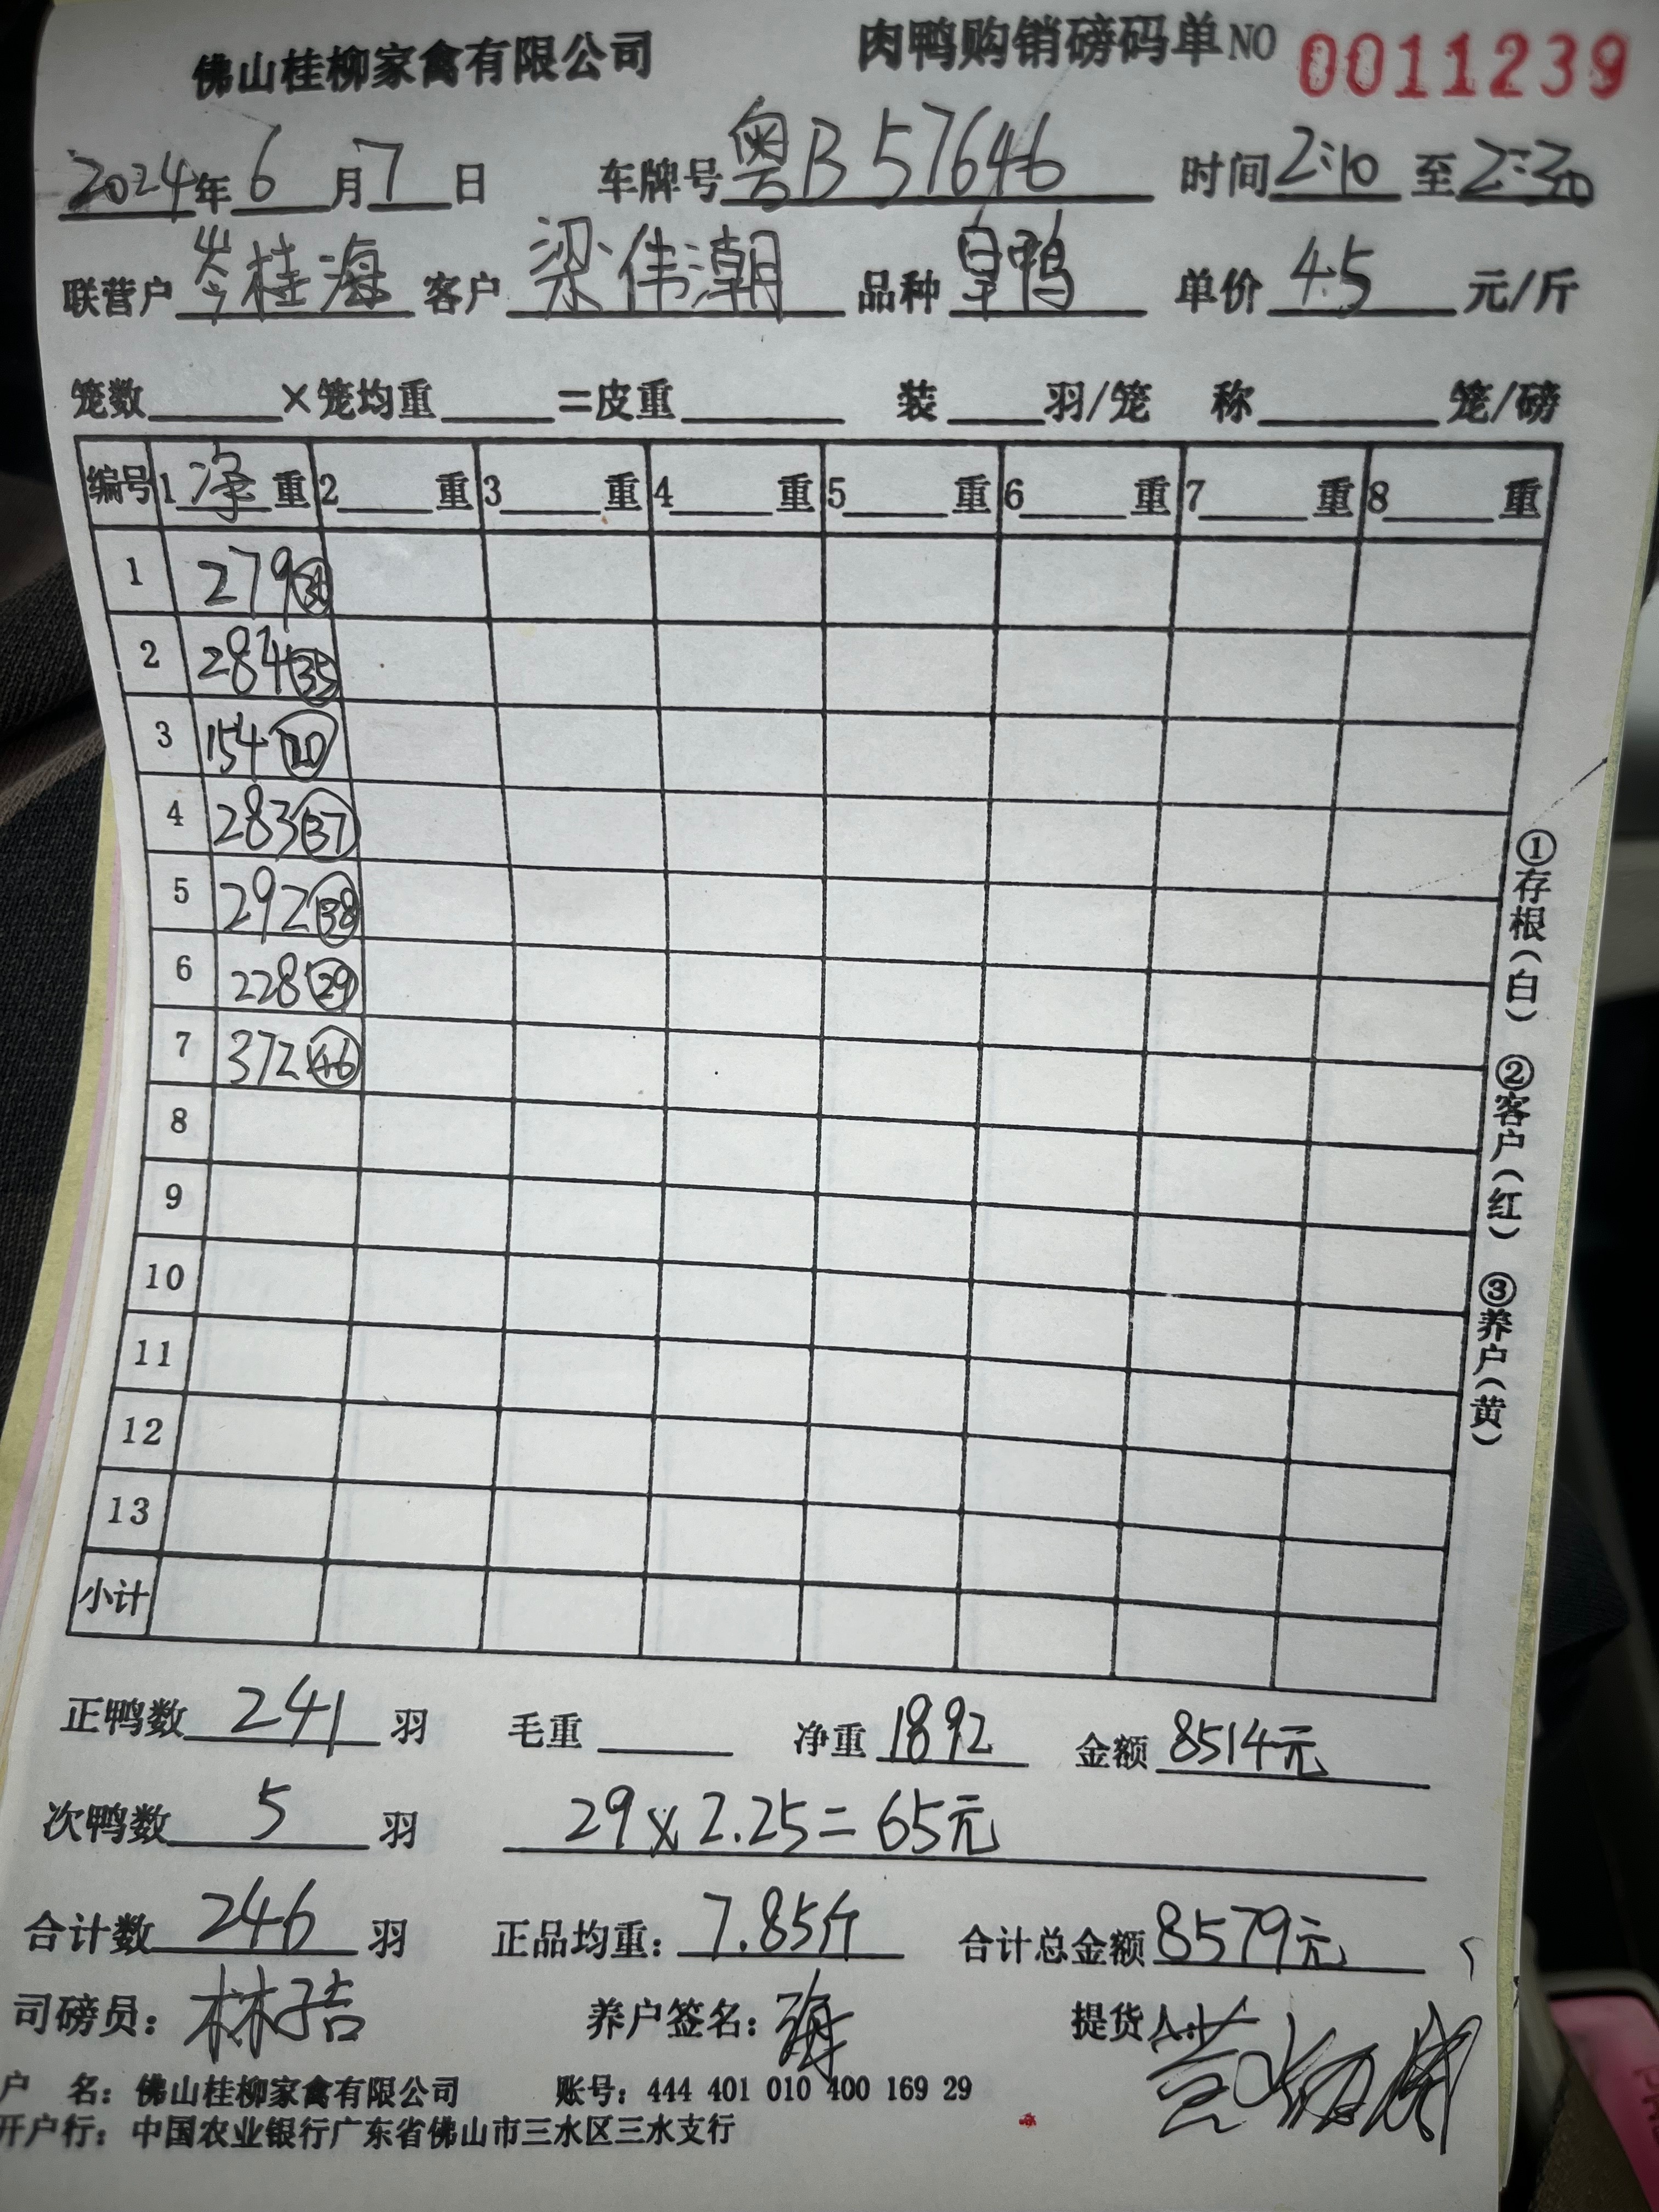 佛山桂柳家禽有限公司 肉鸭购销磅码单NO 0011239
2024年6月7日 车牌号粤B57646 时间2:10至2:30
联营户岑桂海 客户梁伟潮 品种皇鸭 单价4.5元/斤
笼数 ×笼均重 =皮重 装 羽/笼 称 笼/磅
编号 1净重 2 重 3 重 4 重 5 重 6 重 7 重 8 重
1 279 36
2 284 35
3 154 20
4 283 37
5 292 38
6 228 29
7 372 46
8
9
10
11
12
13
小计
①存根(白) ②客户(红) ③养户(黄)
正鸭数241羽 毛重 净重1892 金额8514元
次鸭数5羽 29×2.25=65元
合计数246羽 正品均重:7.85斤 合计总金额8579元
司磅员:林浩 养户签名:海 提货人:
户 名:佛山桂柳家禽有限公司 账号:444 401 010 400 169 29
开户行:中国农业银行广东省佛山市三水区三水支行